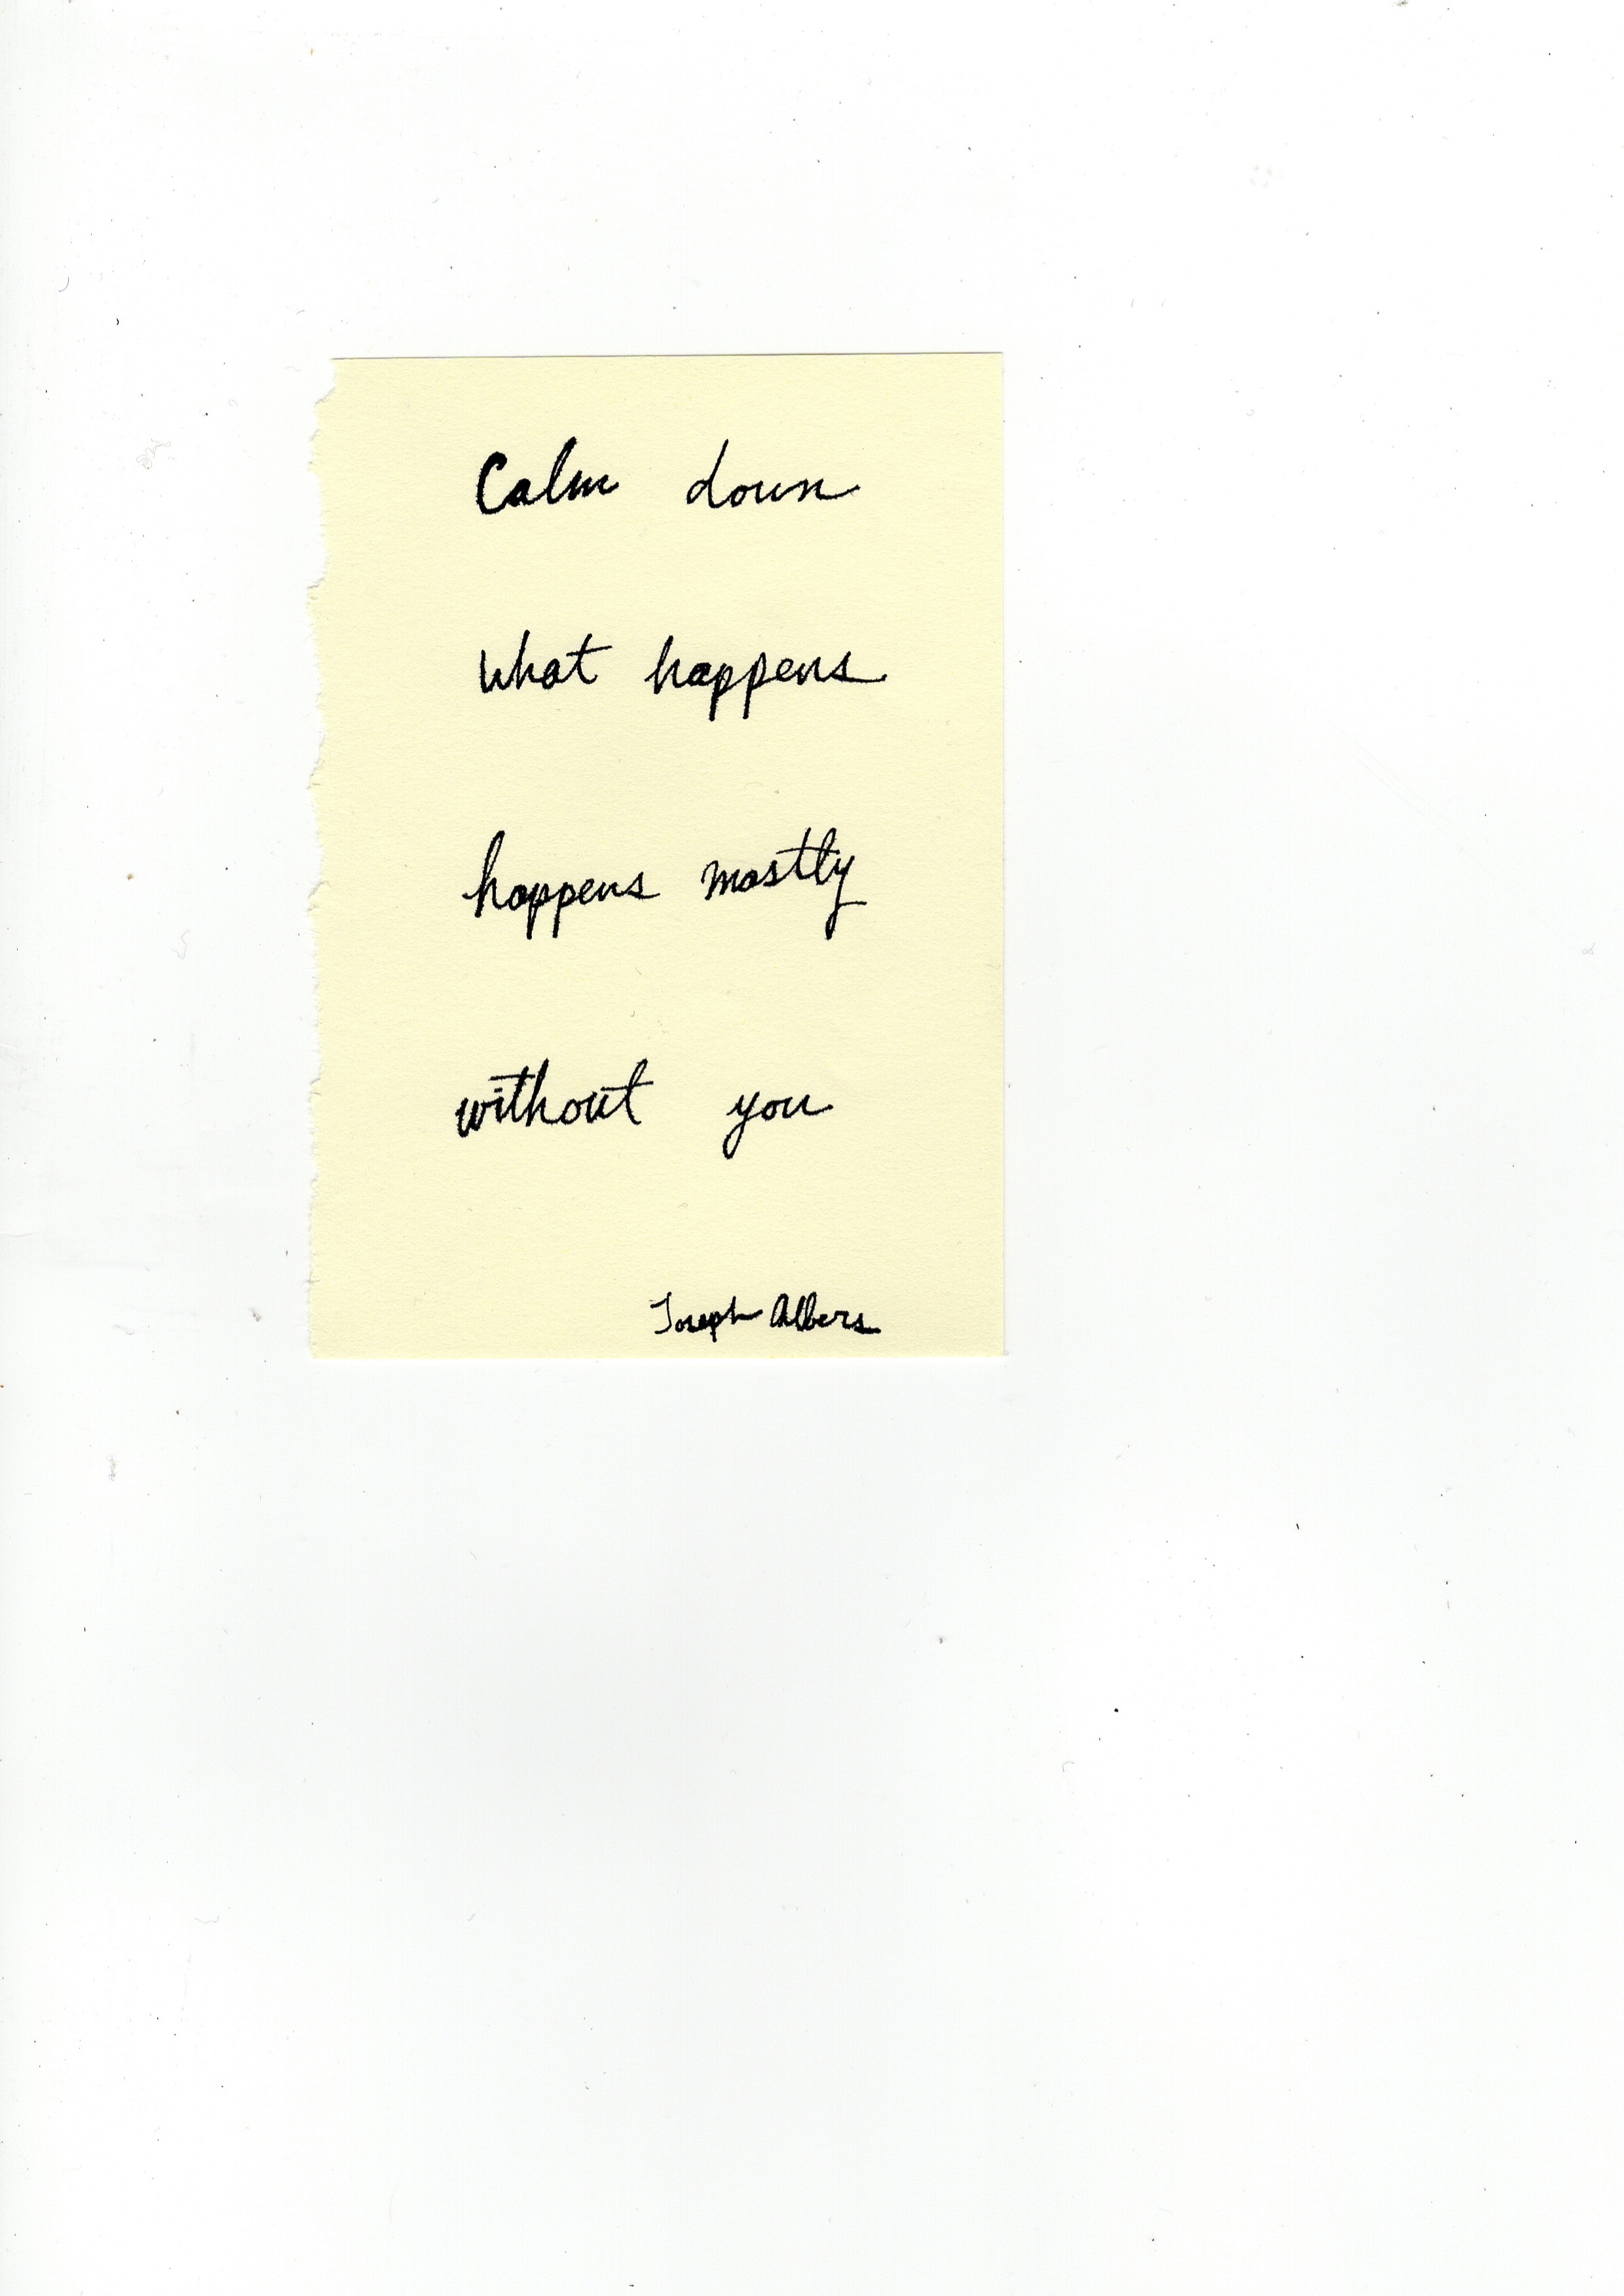 Calm down
what happens
happens mostly
without you
Joseph Albers